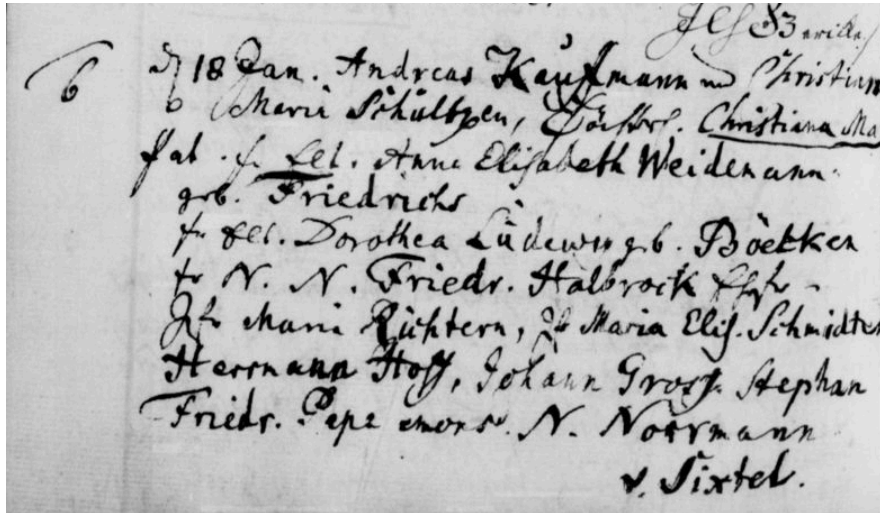 6 d 18 Jan. Andreas Kauffmann und Christian
Maria Schultzen, Töchterl. Christiana Ma
fr. sel. Anna Elisabeth Weidemann
geb. Friedrichs
fr. sel. Dorothea Lüdewin geb. Böetken
fr N. N. Friedr. Halbrock Ehfr
Jfr Maria Richtern, Jfr Maria Elis. Schmidten
Herrmann Hoff, Johann Grosf. Stephan
Friedr. Pape N. Norrmann
v. Sixtel.